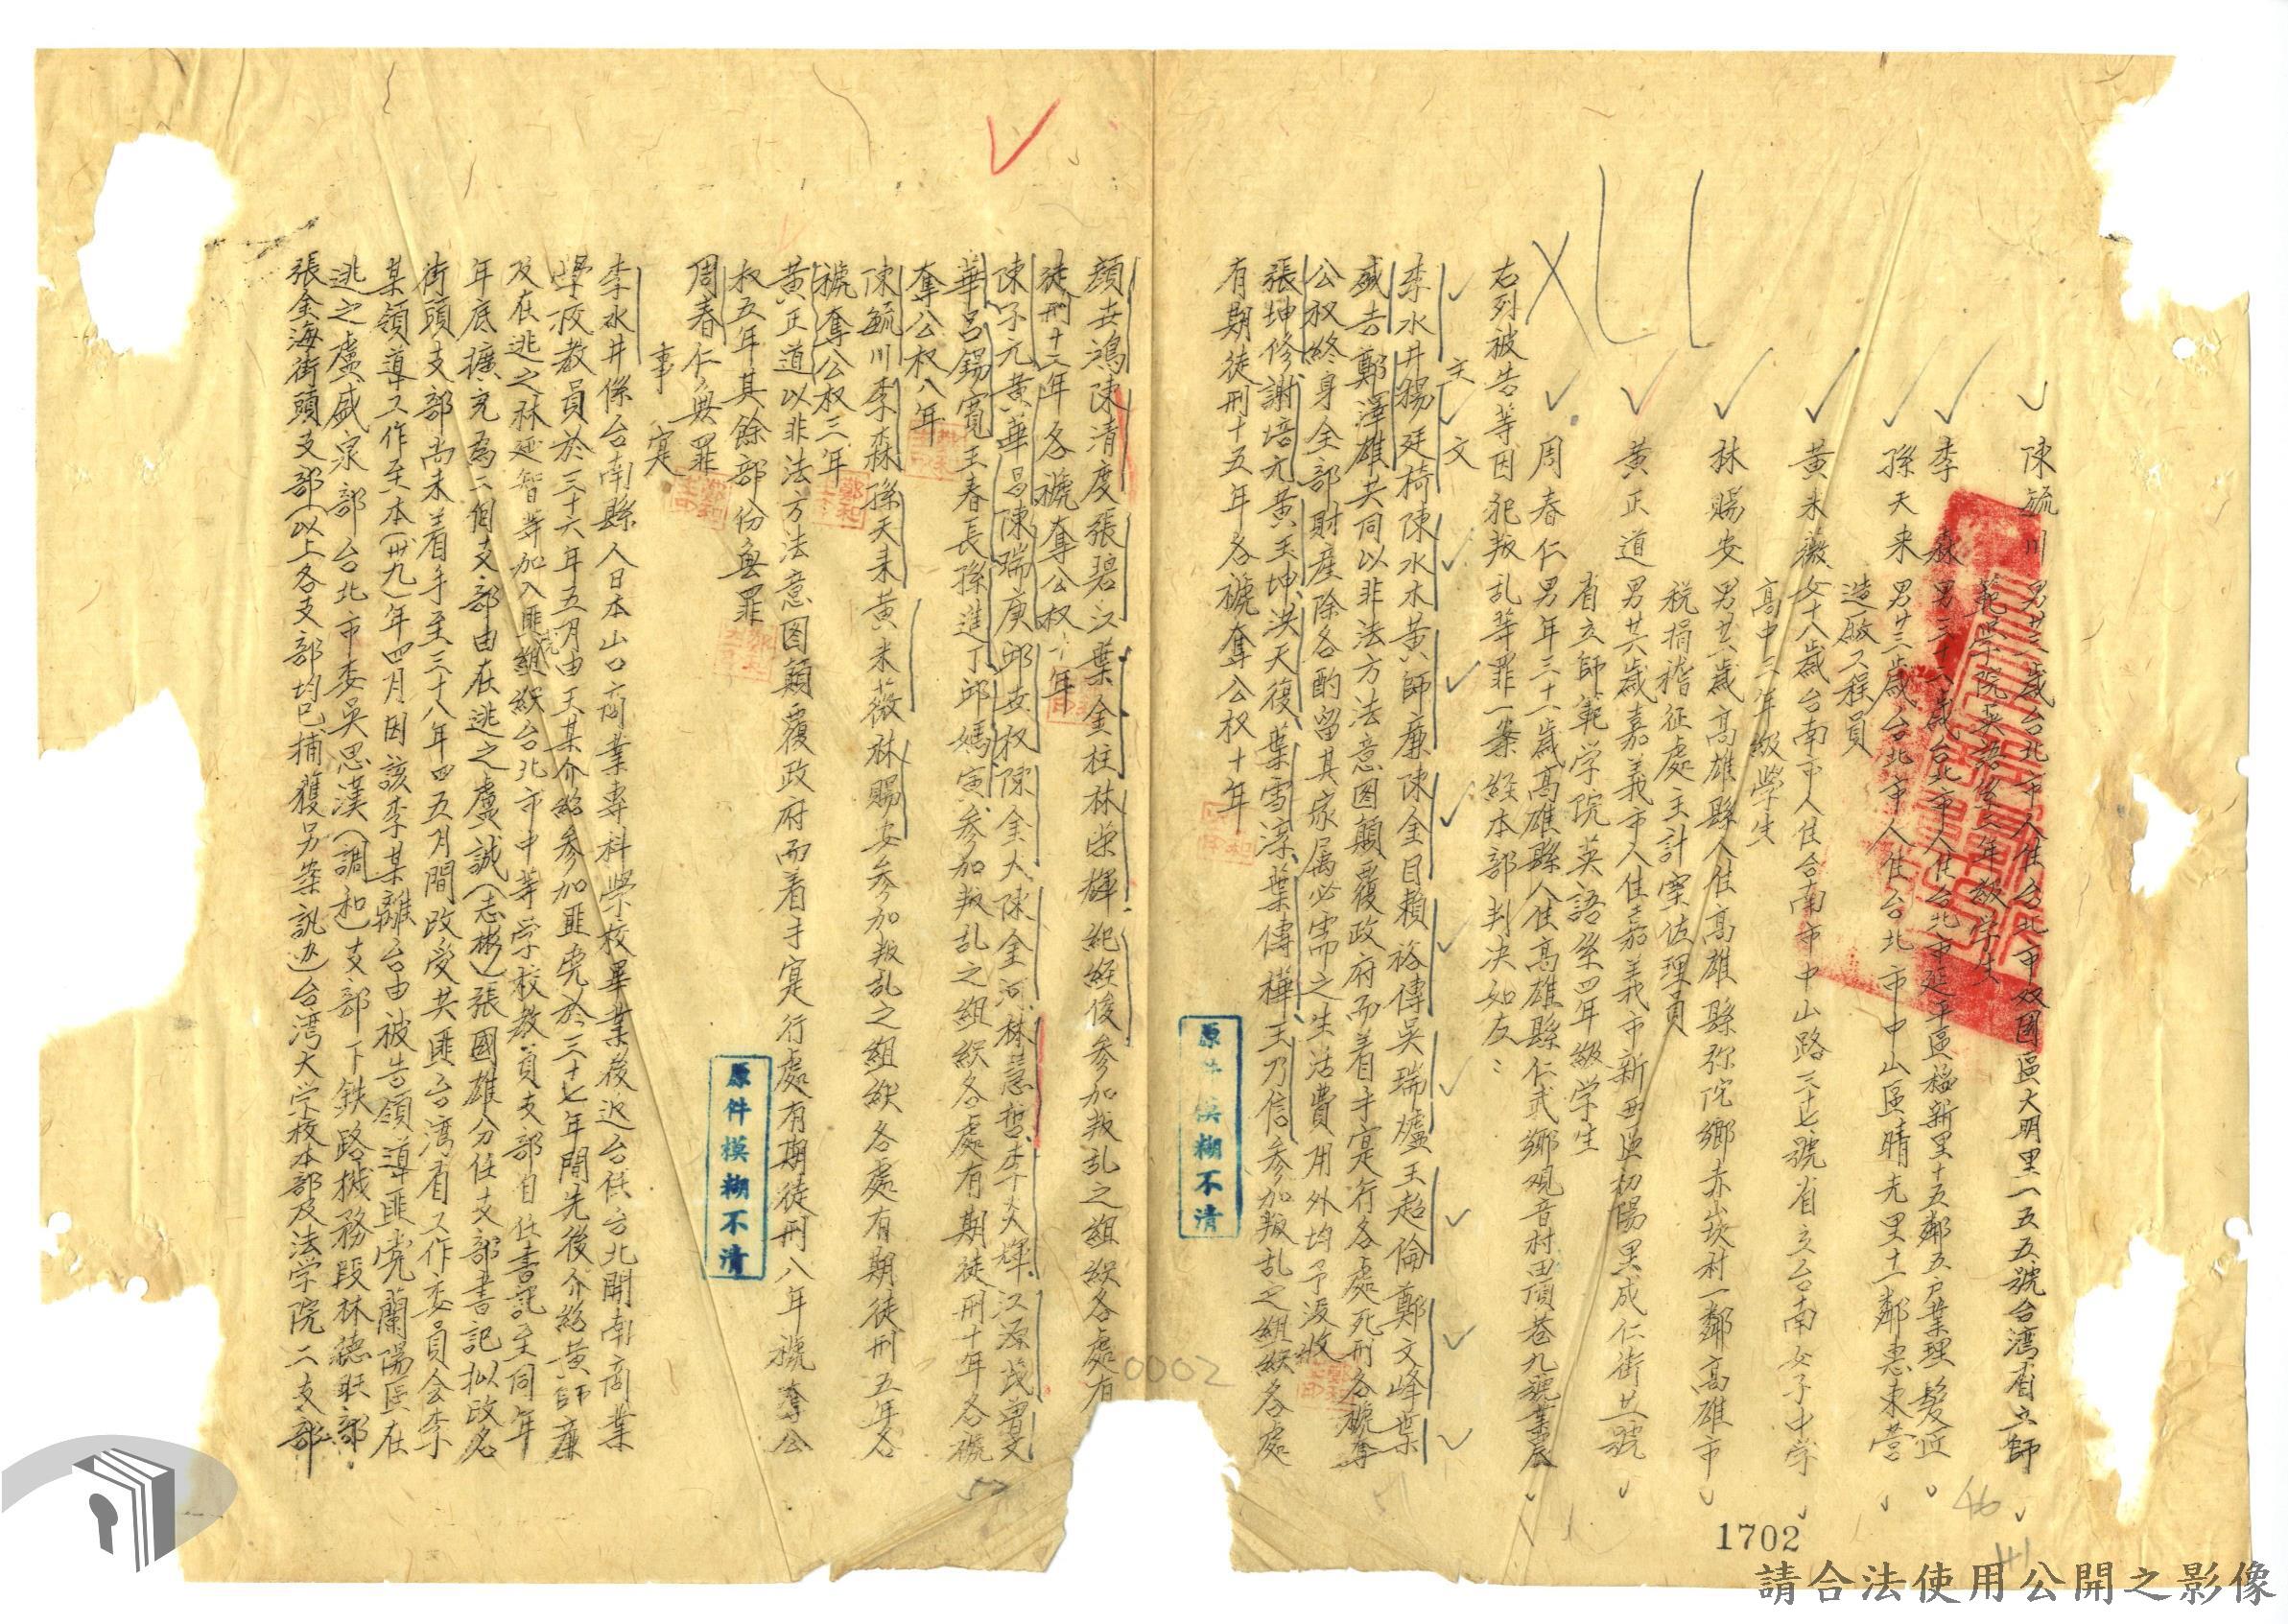 陳毓川 男廿三歲台北市人住台北市双園區大明里一五五號台湾省立師
範学院英語系三年級学生
李 森 男三十八歲台北市人住台北市延平區橋新里十五鄰五户業理髮匠
孫天来 男廿三歲台北市人住台北市中山區晴光里十一鄰惠東營
造廠工程員
黃未薇 女十八歲台南市人住台南市中山路三十七號省立台南女子中学
高中二年級学生
林賜安 男廿歲高雄縣人住高雄縣弥陀鄉赤崁村一鄰高雄市
税捐稽征處主計室佐理員
黃正道 男廿歲嘉義市人住嘉義市新西區初陽里成仁街廿號
省立師範学院英語系四年級学生
周春仁 男年三十一歲高雄縣人住高雄縣仁武鄉观音村田頂巷九號業農
右列被告等因犯叛乱等罪一案経本部判决如左：
主 文
李水井楊廷椅陳水木黃師廉陳金目賴裕傳吳瑞爐王超倫鄭文峰葉
盛吉鄭澤雄共同以非法方法意图顛覆政府而着手实行各處死刑各褫奪
公权終身全部財産除各酌留其家属必需之生活費用外均予没收
張坤修謝培元黃玉坤洪天復葉雪淳葉傳樺王乃信参加叛乱之組織各處
有期徒刑十五年各褫奪公权十年
顔世鴻陳清度張碧江葉金柱林榮輝紀経俊参加叛乱之組織各處有
徒刑十二年各褫奪公权十年
陳子元黃華昌陳瑞庚邱世权陳金大陳金河林慧哲李大輝江源茂曾文
華呂錫寬王春長孫進丁邱媽寅参加叛乱之組織各處有期徒刑十年各褫
奪公权八年
陳毓川李森孫天来黃未薇林賜安参加叛乱之組織各處有期徒刑五年各
褫奪公权三年
黃正道以非法方法意图顛覆政府而着手实行處有期徒刑八年褫奪公
权五年其餘部份無罪
周春仁無罪
事 実
李水井係台南縣人日本山口商業專科學校畢業後返台任台北開南商業
學校教員於三十六年五月由王某介紹参加匪党於三十七年間先後介紹黃師廉
及在逃之林延智等加入匪党組織台北市中等学校教員支部自任書記至同年
年底擴充為二個支部由在逃之盧誠(志彬)張國雄分任支部書記拟改名
街頭支部尚未着手至三十八年四五月間改受共匪台湾省工作委員会李
某領導工作至本(卅九)年四月因該李某離台由被告領導匪党蘭陽區在
逃之盧盛泉部台北市委吳思漢(調和)支部下鉄路机務段林德旺部
張金海街頭支部(以上各支部均已捕獲另案訊办)台湾大学校本部及法学院二支部
原件模糊不清
原件模糊不清
0002
1702
46
請合法使用公開之影像